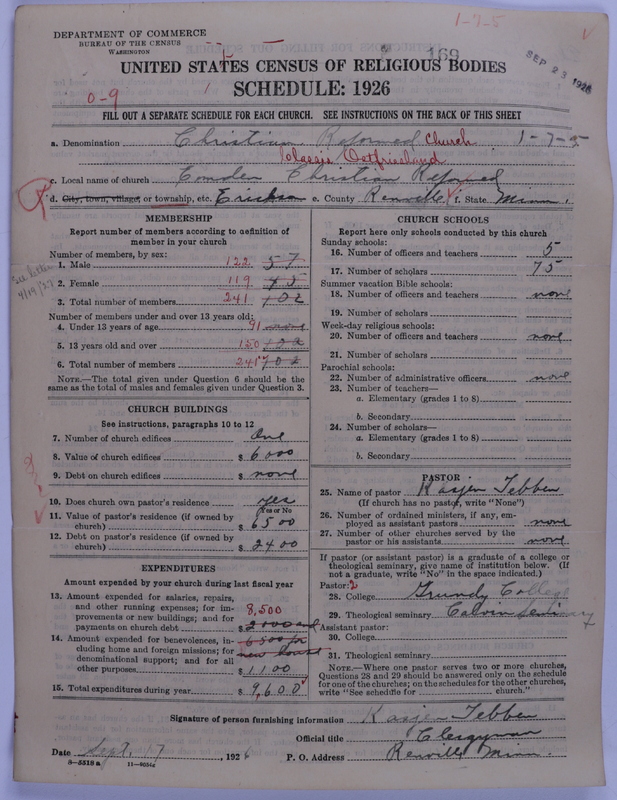 1-7-5
DEPARTMENT OF COMMERCE
BUREAU OF THE CENSUS
WASHINGTON
169
SEP 23 1926
UNITED STATES CENSUS OF RELIGIOUS BODIES
SCHEDULE: 1926
0-9
FILL OUT A SEPARATE SCHEDULE FOR EACH CHURCH. SEE INSTRUCTIONS ON THE BACK OF THIS SHEET
a. Denomination Christian Reformed Church 1-7-5
Classis Ostfriesland
c. Local name of church Comden Christian Reformed
d. City, town, village, or township, etc. Erickson e. County Renville f. State Minn.
MEMBERSHIP
Report number of members according to definition of member in your church
Number of members, by sex:
1. Male 122 57
2. Female 119 45
3. Total number of members 241 102
See letter 4/19/27
Number of members under and over 13 years old:
4. Under 13 years of age 91 none
5. 13 years old and over 150 102
6. Total number of members 241 102
NOTE.—The total given under Question 6 should be the same as the total of males and females given under Question 3.
CHURCH BUILDINGS
See instructions, paragraphs 10 to 12
7. Number of church edifices One
8. Value of church edifices $ 6000
9. Debt on church edifices $ none
10. Does church own pastor's residence yes
Yes or No
11. Value of pastor's residence (if owned by church) $ 6500
12. Debt on pastor's residence (if owned by church) $ 2400
EXPENDITURES
Amount expended by your church during last fiscal year
13. Amount expended for salaries, repairs, and other running expenses; for improvements or new buildings; and for payments on church debt 8,500 $ 2000 and
14. Amount expended for benevolences, including home and foreign missions; for denominational support; and for all other purposes 6500 for new house $ 1100
15. Total expenditures during year $ 9,600
CHURCH SCHOOLS
Report here only schools conducted by this church
Sunday schools:
16. Number of officers and teachers 5
17. Number of scholars 75
Summer vacation Bible schools:
18. Number of officers and teachers none
19. Number of scholars
Week-day religious schools:
20. Number of officers and teachers none
21. Number of scholars
Parochial schools:
22. Number of administrative officers none
23. Number of teachers—
a. Elementary (grades 1 to 8)
b. Secondary
24. Number of scholars—
a. Elementary (grades 1 to 8)
b. Secondary
PASTOR
25. Name of pastor Kasjen Tebben
(If church has no pastor, write "None")
26. Number of ordained ministers, if any, employed as assistant pastors none
27. Number of other churches served by the pastor or his assistants none
If pastor (or assistant pastor) is a graduate of a college or theological seminary, give name of institution below. (If not a graduate, write "No" in the space indicated.)
Pastor: 2
28. College Grundy College
29. Theological seminary Calvin Seminary
Assistant pastor:
30. College
31. Theological seminary
NOTE.—Where one pastor serves two or more churches, Questions 28 and 29 should be answered only on the schedule for one of the churches; on the schedules for the other churches, write "See schedule for ........ church."
Signature of person furnishing information Kasjen Tebben
Official title Clergyman
Date Sept. 17, 1926 P. O. Address Renville Minn.
8-5518 a 11-9034a